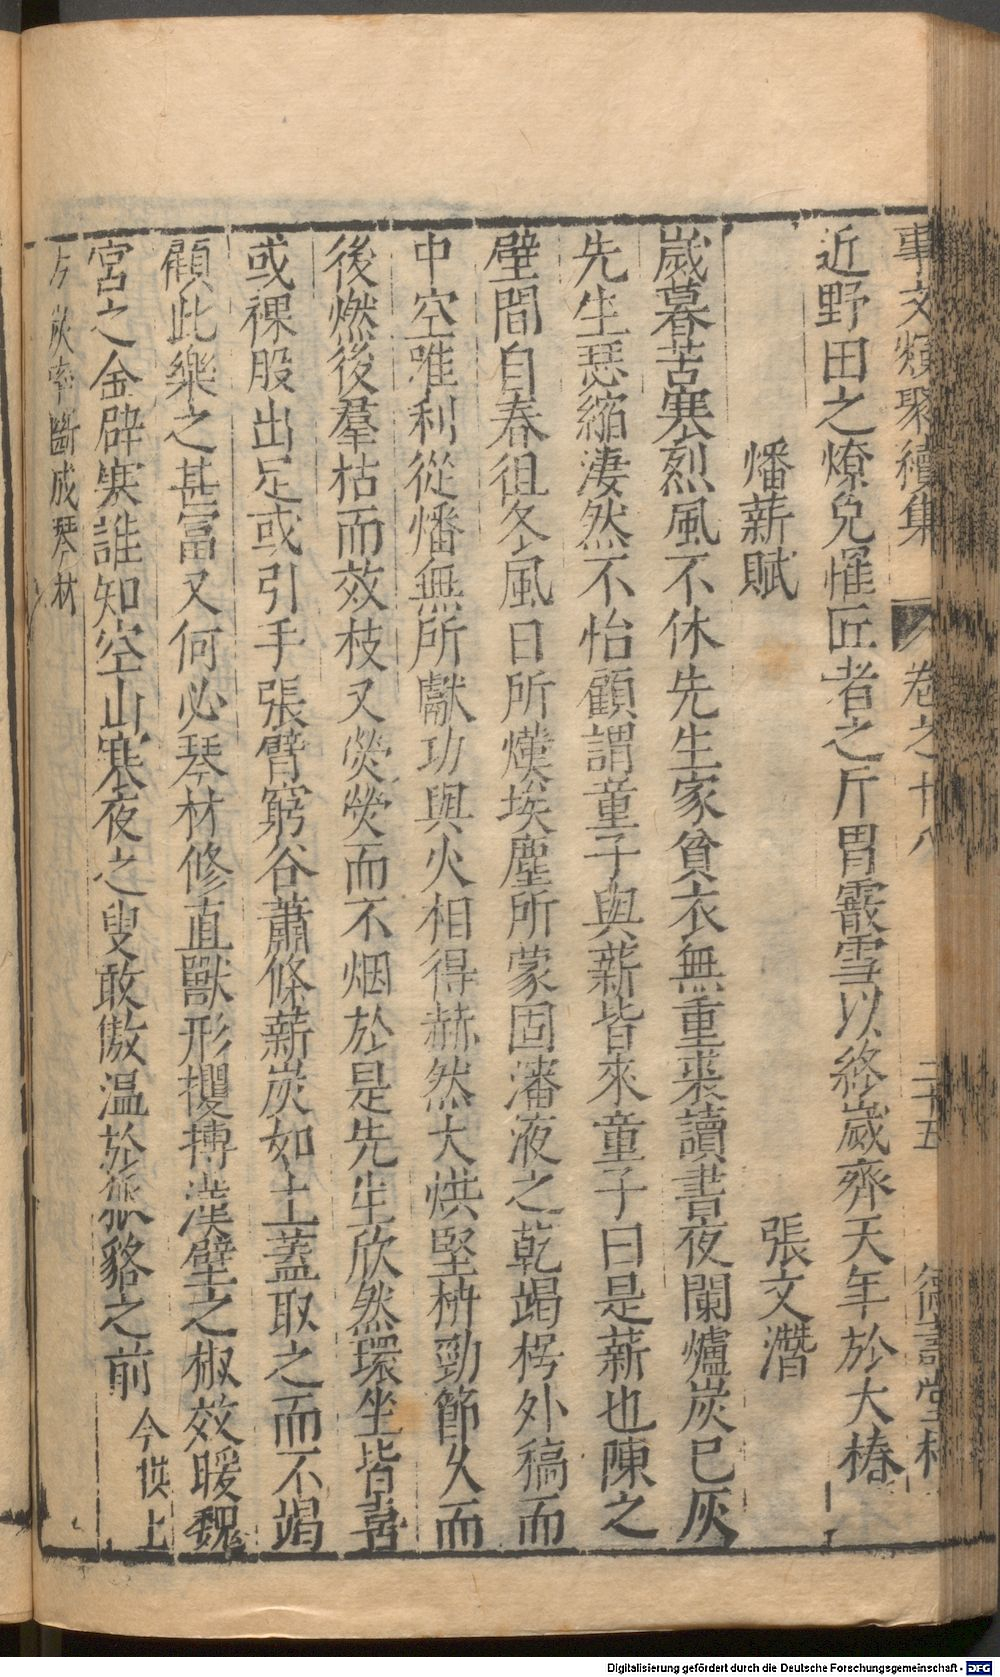 事文類聚續集 卷之十八 二十五 德壽堂梓
近野田之燎免罹匠者之斤胃霰雪以終歲齊天年於大椿
燔薪賦 張文潛
歲暮苦寒烈風不休先生家貧衣無重裘讀書夜闌爐炭已灰
先生瑟縮淒然不怡顧謂童子與薪皆來童子曰是薪也陳之
壁間自春徂冬風日所熯埃塵所蒙固瀋液之乾竭楞外稿而
中空雖利從燔無所獻功與火相得赫然大烘堅枿勁節久而
後燃後羣枯而效枝又熒熒而不烟於是先生欣然環坐皆喜
或裸股出足或引手張臂窮谷蕭條薪炭如土蓋取之而不竭
顧此樂之甚富又何必琴材修直獸形攫搏漢壁之椒效暖魏
宮之金辟寒誰知空山寒夜之叟敢傲温於狐貉之前 今供上
方炭率斷成琴材
Digitalisierung gefördert durch die Deutsche Forschungsgemeinschaft - DFG